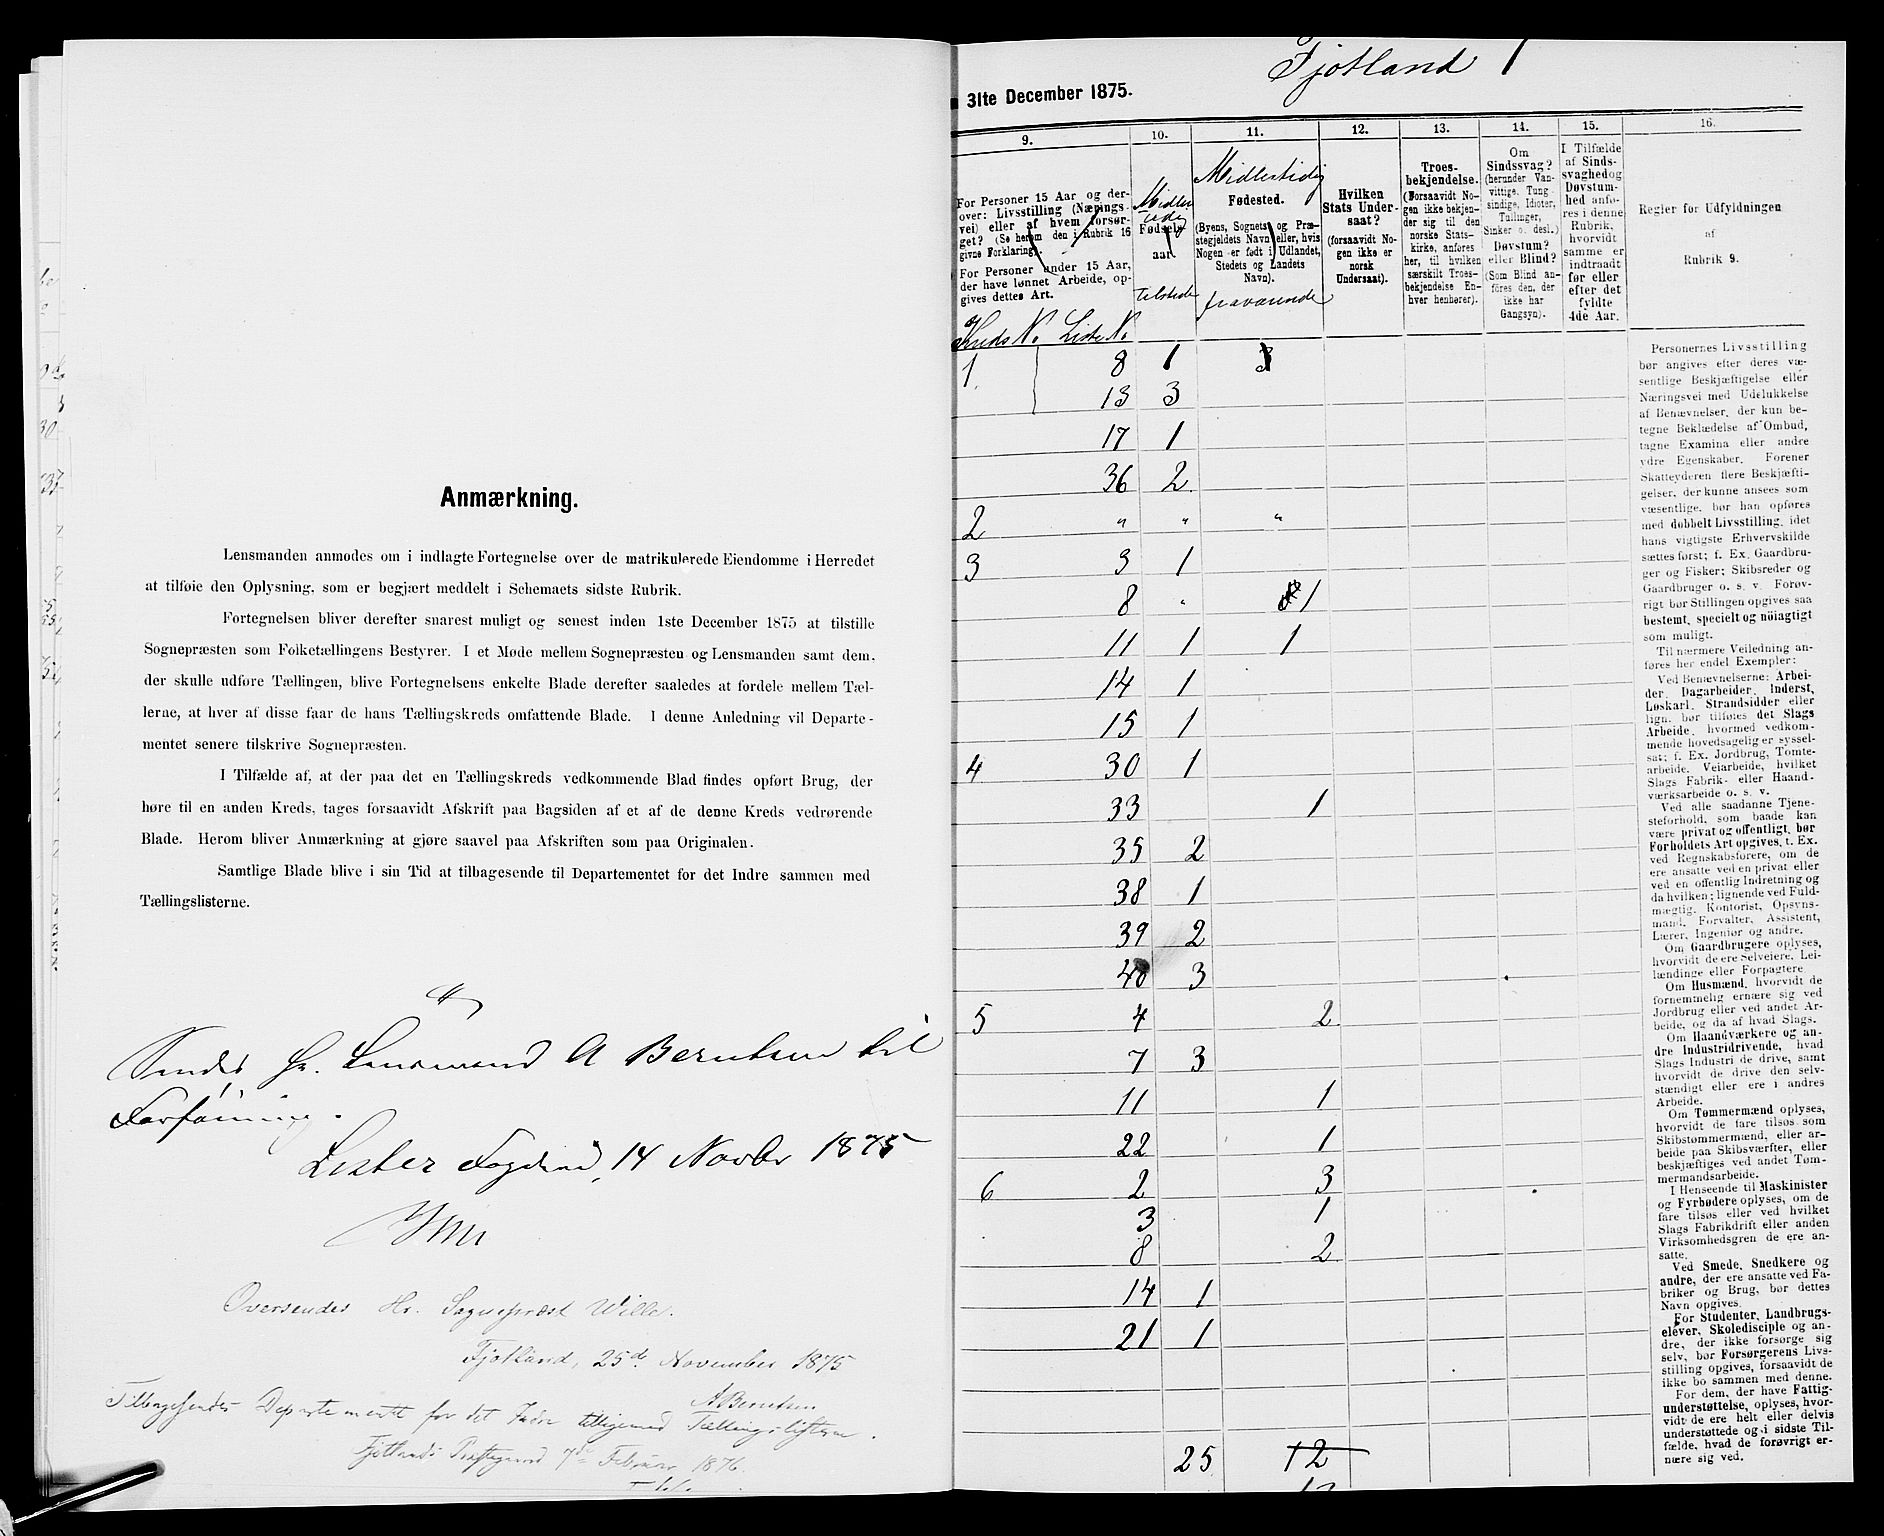 Anmærkning.
Lensmanden anmodes om i indlagte Fortegnelse over de matrikulerede Eiendomme i Herredet
at tilføie den Oplysning, som er begjært meddelt i Schemaets sidste Rubrik.
Fortegnelsen bliver derefter snarest muligt og senest inden 1ste December 1875 at tilstille
Sognepræsten som Folketællingens Bestyrer. I et Møde mellem Sognepræsten og Lensmanden samt dem,
der skulle udføre Tællingen, blive Fortegnelsens enkelte Blade derefter saaledes at fordele mellem Tæl-
lerne, at hver af disse faar de hans Tællingskreds omfattende Blade. I denne Anledning vil Departe-
mentet senere tilskrive Sognepræsten.
I Tilfælde af, at der paa det en Tællingskreds vedkommende Blad findes opført Brug, der
høre til en anden Kreds, tages forsaavidt Afskrift paa Bagsiden af et af de denne Kreds vedrørende
Blade. Herom bliver Anmærkning at gjøre saavel paa Afskriften som paa Originalen.
Samtlige Blade blive i sin Tid at tilbagesende til Departementet for det Indre sammen med
Tællingslisterne.
Sendes Hr. Lensmand A Berntsen til
Forføining.
Lister Fogderi, 14 Novbr 1875
Oversendes Hr. Sognepræst Wille.
Fjotland, 25de November 1875
ABerntsen
Tilbagesendes Departementet for det Indre tilligemed Tællingslisterne.
Fjotlands Præstegaard 7de Februar 1876.
Fjotland 1
31te December 1875.
9.
For Personer 15 Aar og der-
over: Livsstilling (Nærings-
vei) eller af hvem forsør-
get? (Se herom den i Rubrik 16
givne Forklaring).
For Personer under 15 Aar,
der have lønnet Arbeide, op-
gives dettes Art.
Kreds No. Liste No.
10.
Midler
tidig
Fødsels-
aar.
tilstede
11.
Midlertidig
Fødested.
(Byens, Sognets og Præ-
stegjeldets Navn, eller, hvis
Nogen er født i Udlandet,
Stedets og Landets
Navn).
fraværende
12.
Hvilken
Stats Under-
saat?
(forsaavidt No-
gen ikke er
norsk
Undersaat).
13.
Troes-
bekjendelse.
(Forsaavidt No-
gen ikke bekjen-
der sig til den
norske Stats-
kirke, anføres
her, til hvilken
særskilt Troes-
bekjendelse En-
hver henhører).
14.
Om
Sindssvag?
(herunder Van-
vittige, Tung-
sindige, Idioter,
Tullinger,
Sinker o. desl.)
Døvstum?
eller Blind?
(Som Blind an-
føres den, der
ikke har
Gangsyn).
15.
I Tilfælde
af Sinds-
svaghed og
Døvstum-
hed anfø-
res i denne
Rubrik,
hvorvidt
samme er
indtraadt
før eller
efter det
fyldte
4de Aar.
16.
Regler for Udfyldningen
af
Rubrik 9.
1 8 1
13 3
17 1
36 2
2 " " "
3 3 1
8 " 1
11 1 1
14 1
15 1
4 30 1
33 1
35 2
38 1
39 2
40 3
5 4 2
7 3
11 1
22 1
6 2 3
3 1
8 2
14 1
21 1
25 12
Personernes Livsstilling
bør angives efter deres væ-
sentlige Beskjæftigelse eller
Næringsvei med Udelukkelse
af Benævnelser, der kun be-
tegne Beklædelse af Ombud,
tagne Examina eller andre
ydre Egenskaber. Forener
Skatteyderen flere Beskjæfti-
gelser, der kunne ansees som
væsentlige, bør han opføres
med dobbelt Livsstilling, idet
hans vigtigste Erhvervskilde
sættes først; f. Ex. Gaardbru-
ger og Fisker; Skibsreder og
Gaardbruger o. s. v. Forøv-
rigt bør Stillingen opgives saa
bestemt, specielt og nöiagtigt
som muligt.
Til nærmere Veiledning an-
føres her endel Exempler:
Ved Benævnelserne: Arbei-
der, Dagarbeider, Inderst,
Løskarl, Strandsidder eller
lign. bør tilføies det Slags
Arbeide, hvormed vedkom-
mende hovedsagelig er syssel-
sat; f. Ex. Jordbrug, Tomte-
arbeide, Veiarbeide, hvilket
Slags Fabrik- eller Haand-
værksarbeide o. s. v.
Ved alle saadanne Tjene-
steforhold, som baade kan
være privat og offentligt, bør
Forholdets Art opgives, t. Ex.
ved Regnskabsførere, om de
ere ansatte ved en privat eller
ved en offentlig Indretning og
da hvilken; lignende ved Fuld-
mægtig, Kontorist, Opsyns-
mand, Forvalter, Assistent,
Lærer, Ingeniør og andre.
Om Gaardbrugere oplyses,
hvorvidt de ere Selveiere, Lei-
lændinge eller Forpagtere
Om Husmænd, hvorvidt de
fornemmelig ernære sig ved
Jordbrug eller ved andet Ar-
beide, og da af hvad Slags.
Om Haandværkere og an-
dre Industridrivende, hvad
Slags Industri de drive, samt
hvorvidt de drive den selv-
stændigt eller ere i andres
Arbeide.
Om Tømmermænd oplyses,
hvorvidt de fare tilsøs som
Skibstømmermænd, eller ar-
beide paa Skibsværfter, eller
beskjæftiges ved andet Tøm-
mermandsarbeide.
I Henseende til Maskinister
og Fyrbødere oplyses, om de
fare tilsøs eller ved hvilket
Slags Fabrikdrift eller anden
Virksomhedsgren de ere an-
satte.
Ved Smede, Snedkere og
andre, der ere ansatte ved Fa-
briker og Brug, bør dettes
Navn opgives.
For Studenter, Landbrugs-
elever, Skoledisciple og an-
dre, der ikke forsørge sig
selv, bør Forsørgerens Livs-
stilling opgives, forsaavidt de
ikke bo sammen med denne.
For dem, der have Fattig-
understøttelse, oplyses, hvor-
vidt de ere helt eller delvis
understøttede og i sidste Til-
fælde, hvad de forøvrigt er-
nære sig ved.